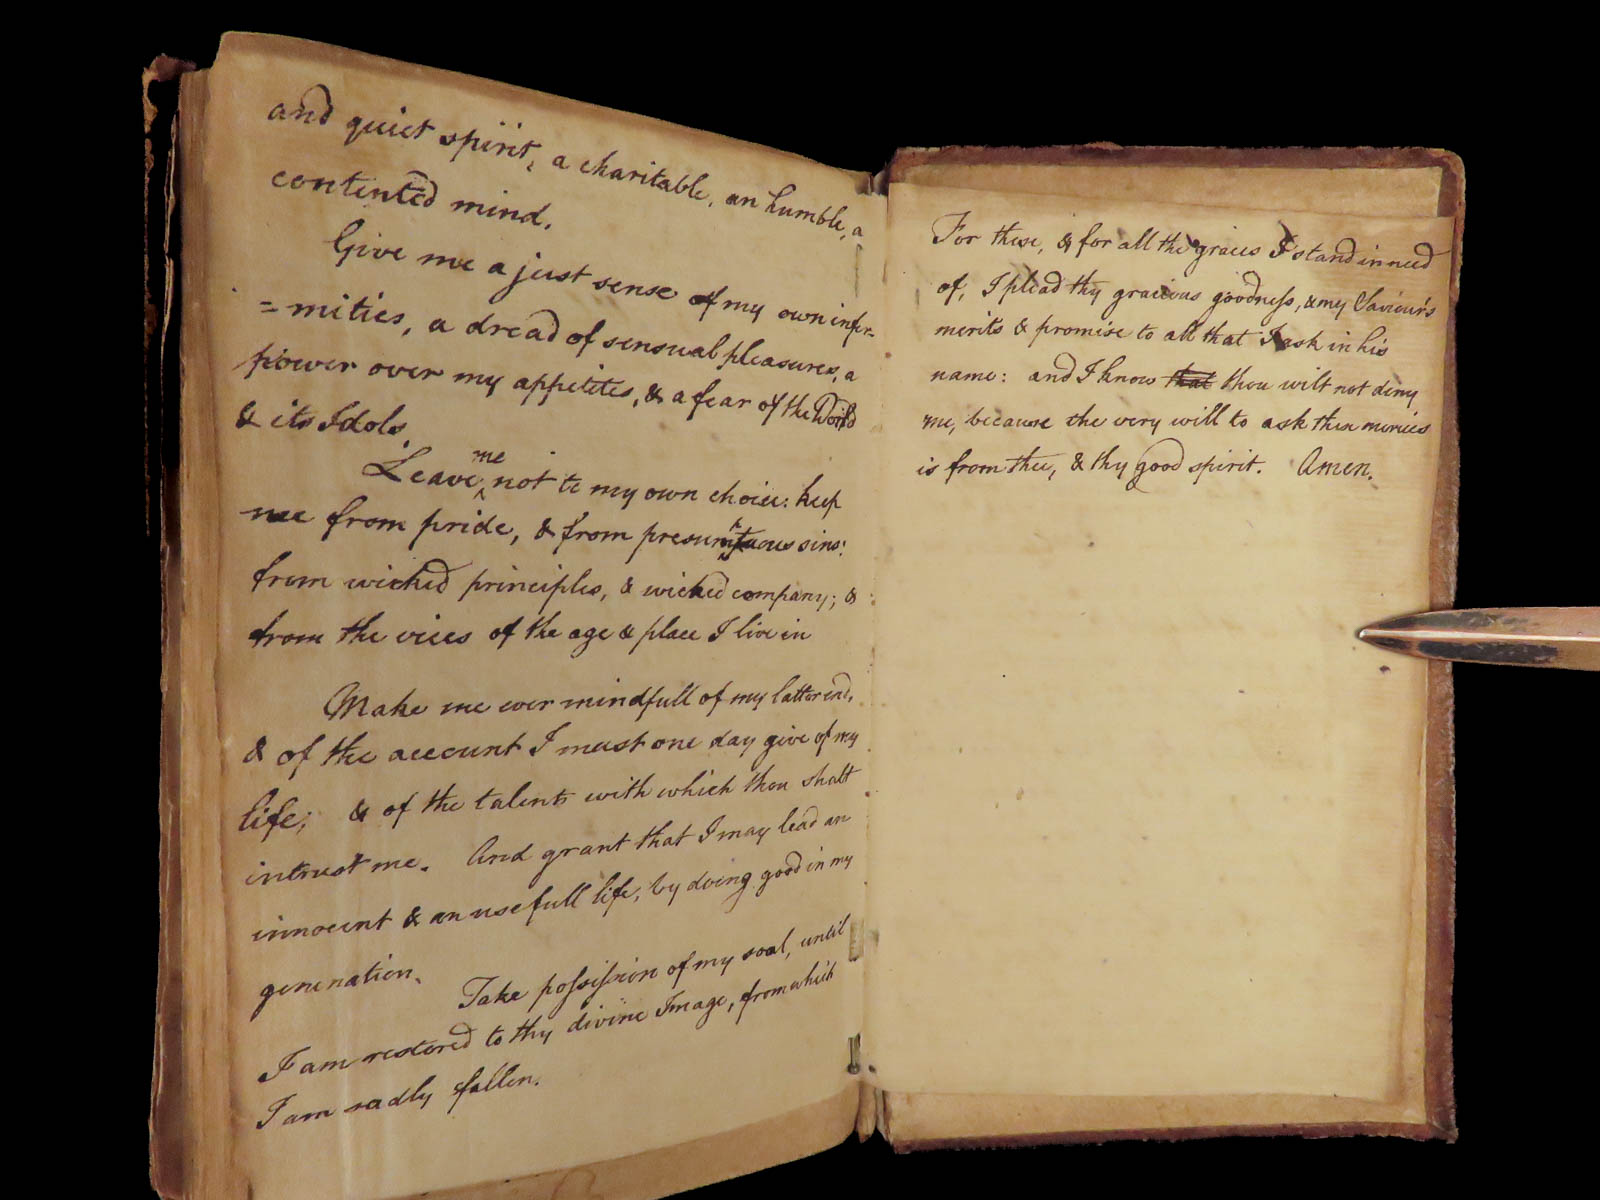 and quiet spirit, a charitable, an humble, a
contented mind.
Give me a just sense of my own infir-
=mities, a dread of sensual pleasures, a
power over my appetites, & a fear of the World
& its Idols.
Leave me not to my own choice: keep
me from pride, & from presumptuous sins:
from wicked principles, & wicked company; &
from the vices of the age & place I live in
Make me ever mindfull of my latter end,
& of the account I must one day give of my
life; & of the talents with which thou shalt
intrust me. And grant that I may lead an
innocent & an usefull life, by doing good in my
generation.
Take possession of my soal, until
I am restored to thy divine Image, from which
I am sadly fallen.
For these, & for all the graces I stand in need
of, I plead thy gracious goodness, & my Saviour's
merits & promise to all that I ask in his
name: and I know that thou wilt not deny
me, because the very will to ask these mercies
is from thee, & thy good spirit. Amen.